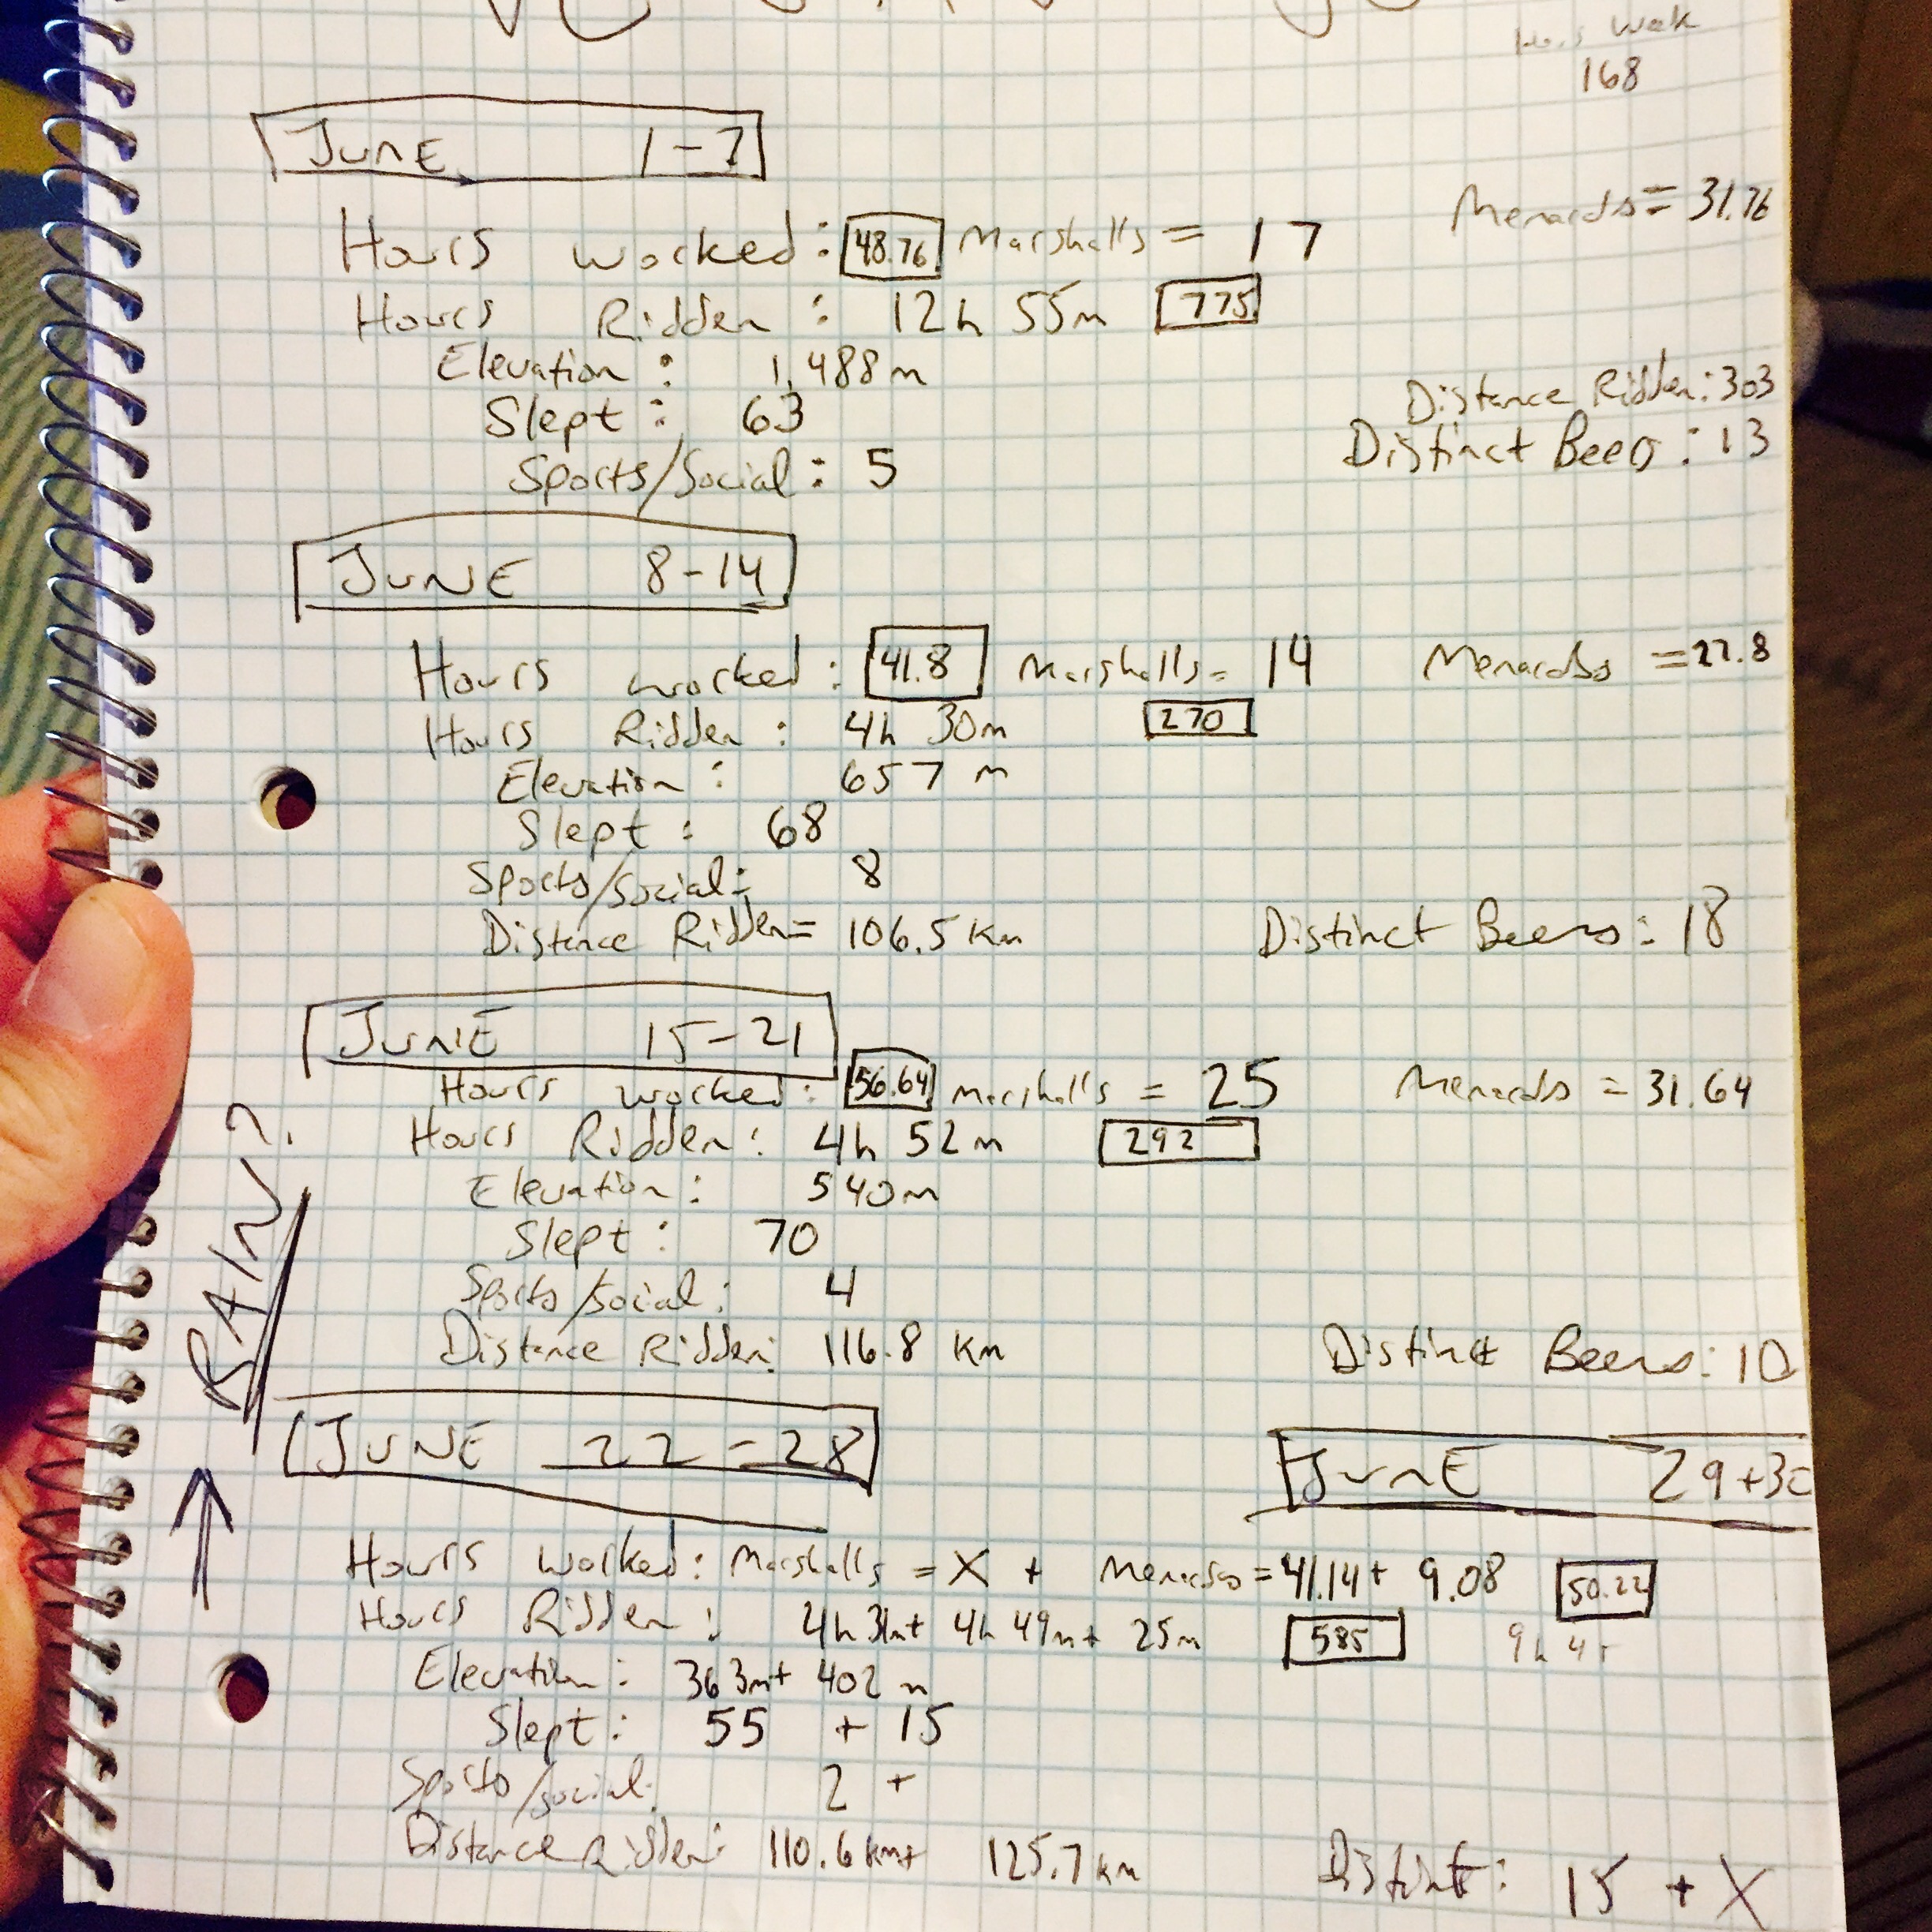 Week
168
June 1-7
Hours Worked: 48.76 Marshalls = 17 Menards = 31.76
Hours Ridden: 12h 55m 775
Elevation: 1,488m
Slept: 63
Distance Ridden: 303
Sports/Social: 5
Distinct Beers: 13
JUNE 8-14
Hours worked: 41.8 Marshalls = 14 Menards = 27.8
Hours Ridden: 4h 30m 270
Elevation: 657 m
Slept: 68
Sports/Social: 8
Distance Ridden = 106.5 Km Distinct Beers: 18
JUNE 15-21
Hours worked: 56.64 Marshalls = 25 Menards = 31.64
Hours Ridden: 4h 52m 292
Elevation: 540m
Slept: 70
Sports/Social: 4
Distance Ridden: 116.8 Km Distinct Beers: 10
RAIN?
JUNE 22-28
JUNE 29+30
Hours Worked: Marshalls = X + Menards = 41.14 + 9.08 50.22
Hours Ridden: 4h 31m + 4h 49m + 25m 585 9h 45
Elevation: 363m + 402 m
Slept: 55 + 15
Sports/social: 2 +
Distance Ridden: 110.6 km + 125.7 km Distinct: 15 + X